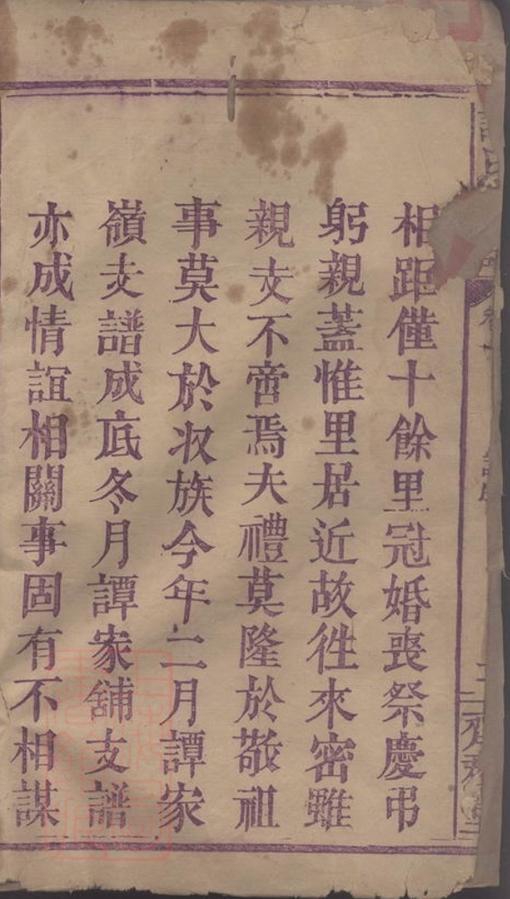 相距僅十餘里冠婚喪祭慶弔
躬親蓋惟里居近故徃來密雖
親支不啻焉夫禮莫隆於敬祖
事莫大於收族今年二月譚家
嶺支譜成底冬月譚家舖支譜
亦成情誼相關事固有不相謀